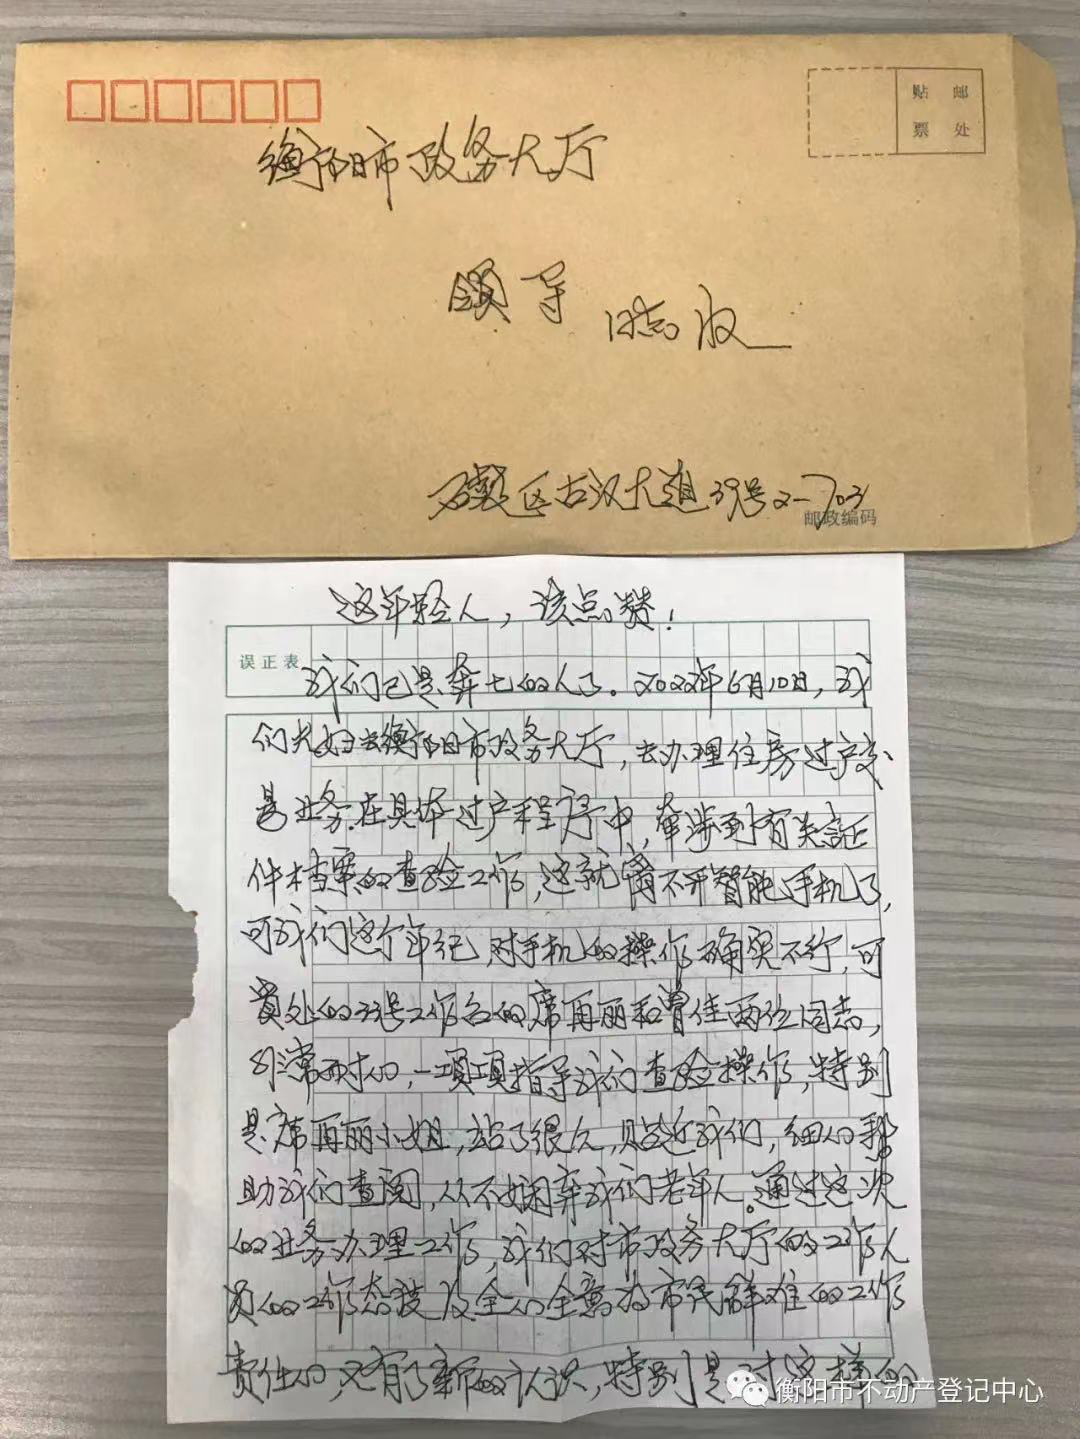 贴邮
票处
衡阳市政务大厅
领导
同志收
石鼓区古汉大道39号2-703
邮政编码
这年轻人，该点赞！
误正表
我们已是奔七的人了。2022年6月10日，我
们夫妇去衡阳市政务大厅，去办理住房过户交
易业务.在具体过户程序中，牵涉到有关証
件档案的查验工作，这就离不开智能手机了，
可我们这个年纪，对手机的操作确实不行，可
贵处的33号工作台的席再丽和曾佳两位同志，
非常耐心，一项项指导我们查验操作，特别
是席再丽小姐，站了很久，贴近我们，细心帮
助我们查阅，从不嫌弃我们老年人。通过这次
的业务办理工作，我们对市政务大厅的工作人
员的工作态度及全心全意为市民解难的工作
责任心，又有了新的认识，特别是对这样的
衡阳市不动产登记中心